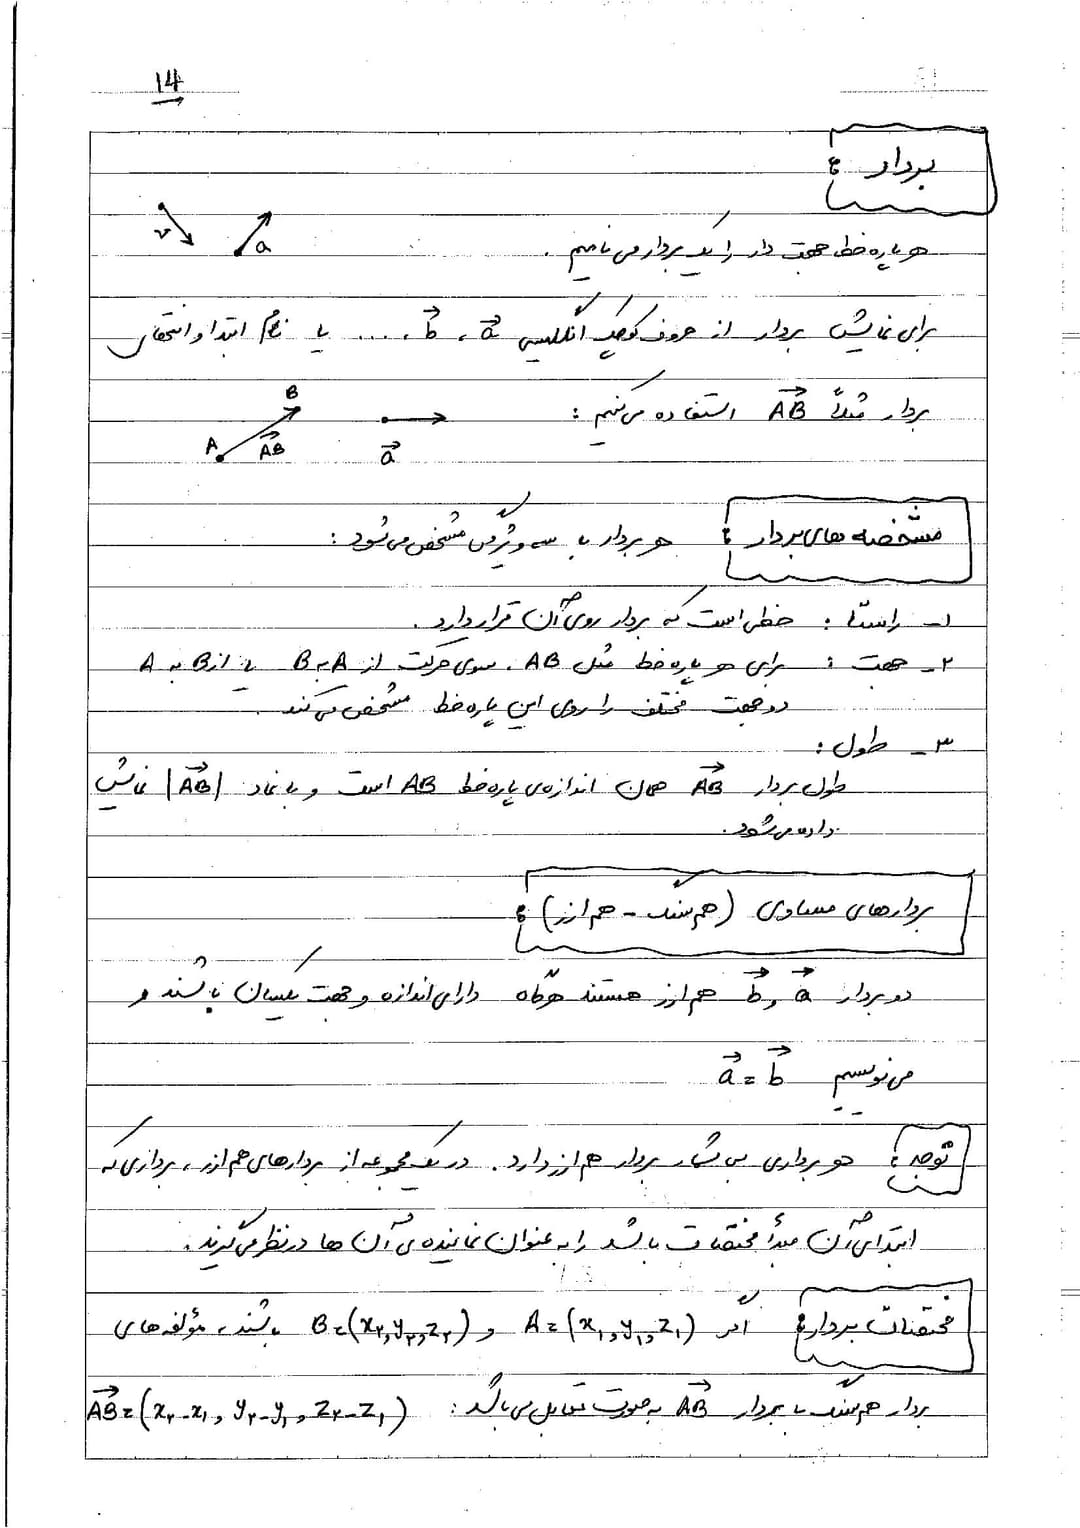 14
بردار :
هر پاره خط جهت دار را یک بردار می نامیم .
v a
برای نمایش بردار از حروف کوچک انگلیسی a⃗ ، b⃗ ، .... یا نام ابتدا و انتهای
بردار مثلاً AB⃗ استفاده می کنیم :
A B AB⃗ a⃗
مشخصه های بردار : هر بردار با سه ویژگی مشخص می شود :
۱- راستا : خطی است که بردار روی آن قرار دارد .
۲- جهت : برای هر پاره خط مثل AB ، سوی حرکت از A به B یا از B به A
دو جهت مختلف را روی این پاره خط مشخص می کند .
۳- طول :
طول بردار AB⃗ همان اندازه ی پاره خط AB است و با نماد |AB⃗| نمایش
داده می شود .
بردارهای مساوی (هم سنگ - هم ارز) :
دو بردار a⃗ و b⃗ هم ارز هستند هرگاه دارای اندازه و جهت یکسان باشند و
می نویسیم a⃗ = b⃗
توجه : هر برداری بی شمار بردار هم ارز دارد . در یک مجموعه از بردارهای هم ارز ، برداری که
ابتدای آن مبدأ مختصات باشد را به عنوان نماینده ی آن ها در نظر می گیرند .
مختصات بردار : اگر A=(x₁,y₁,z₁) و B=(x₂,y₂,z₂) باشند ، مؤلفه های
بردار هم سنگ با بردار AB⃗ به صورت مقابل می باشد : AB⃗=(x₂-x₁, y₂-y₁, z₂-z₁)